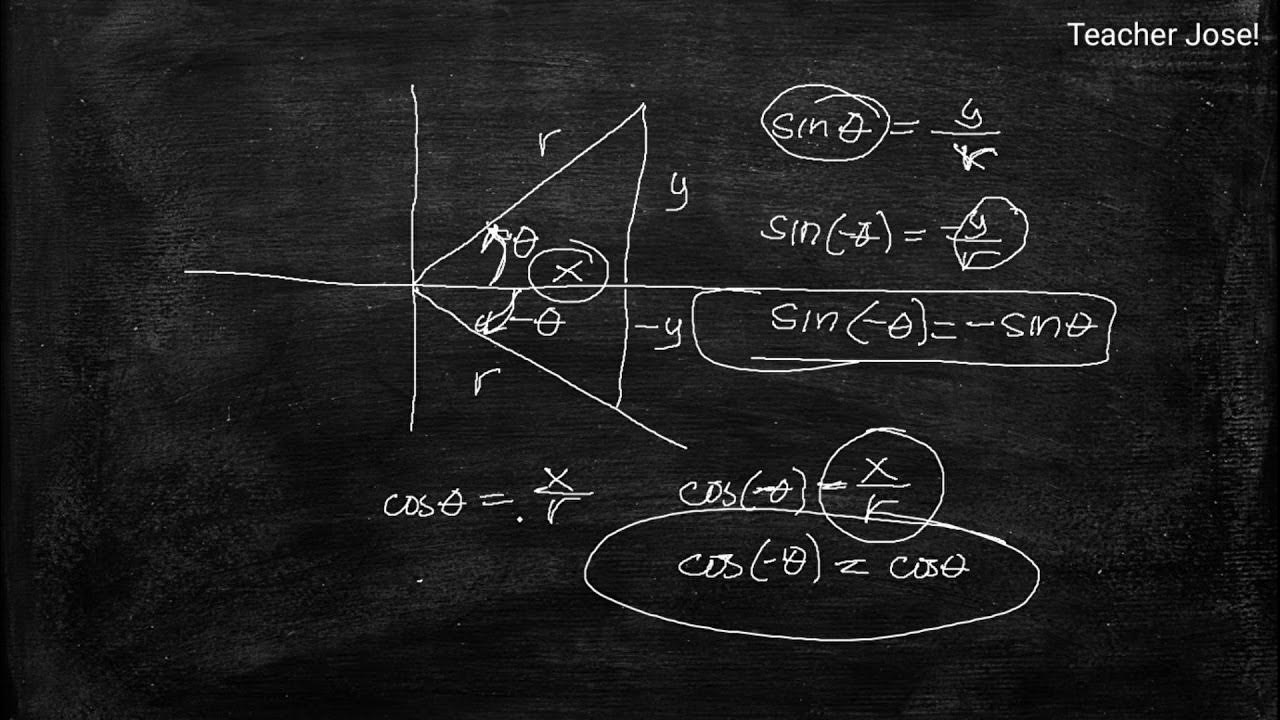 Teacher Jose!
r
y
θ
x
-θ
-y
r
sinθ = y/r
sin(-θ) = -y/r
sin(-θ) = -sinθ
cosθ = x/r
cos(-θ) = x/r
cos(-θ) = cosθ